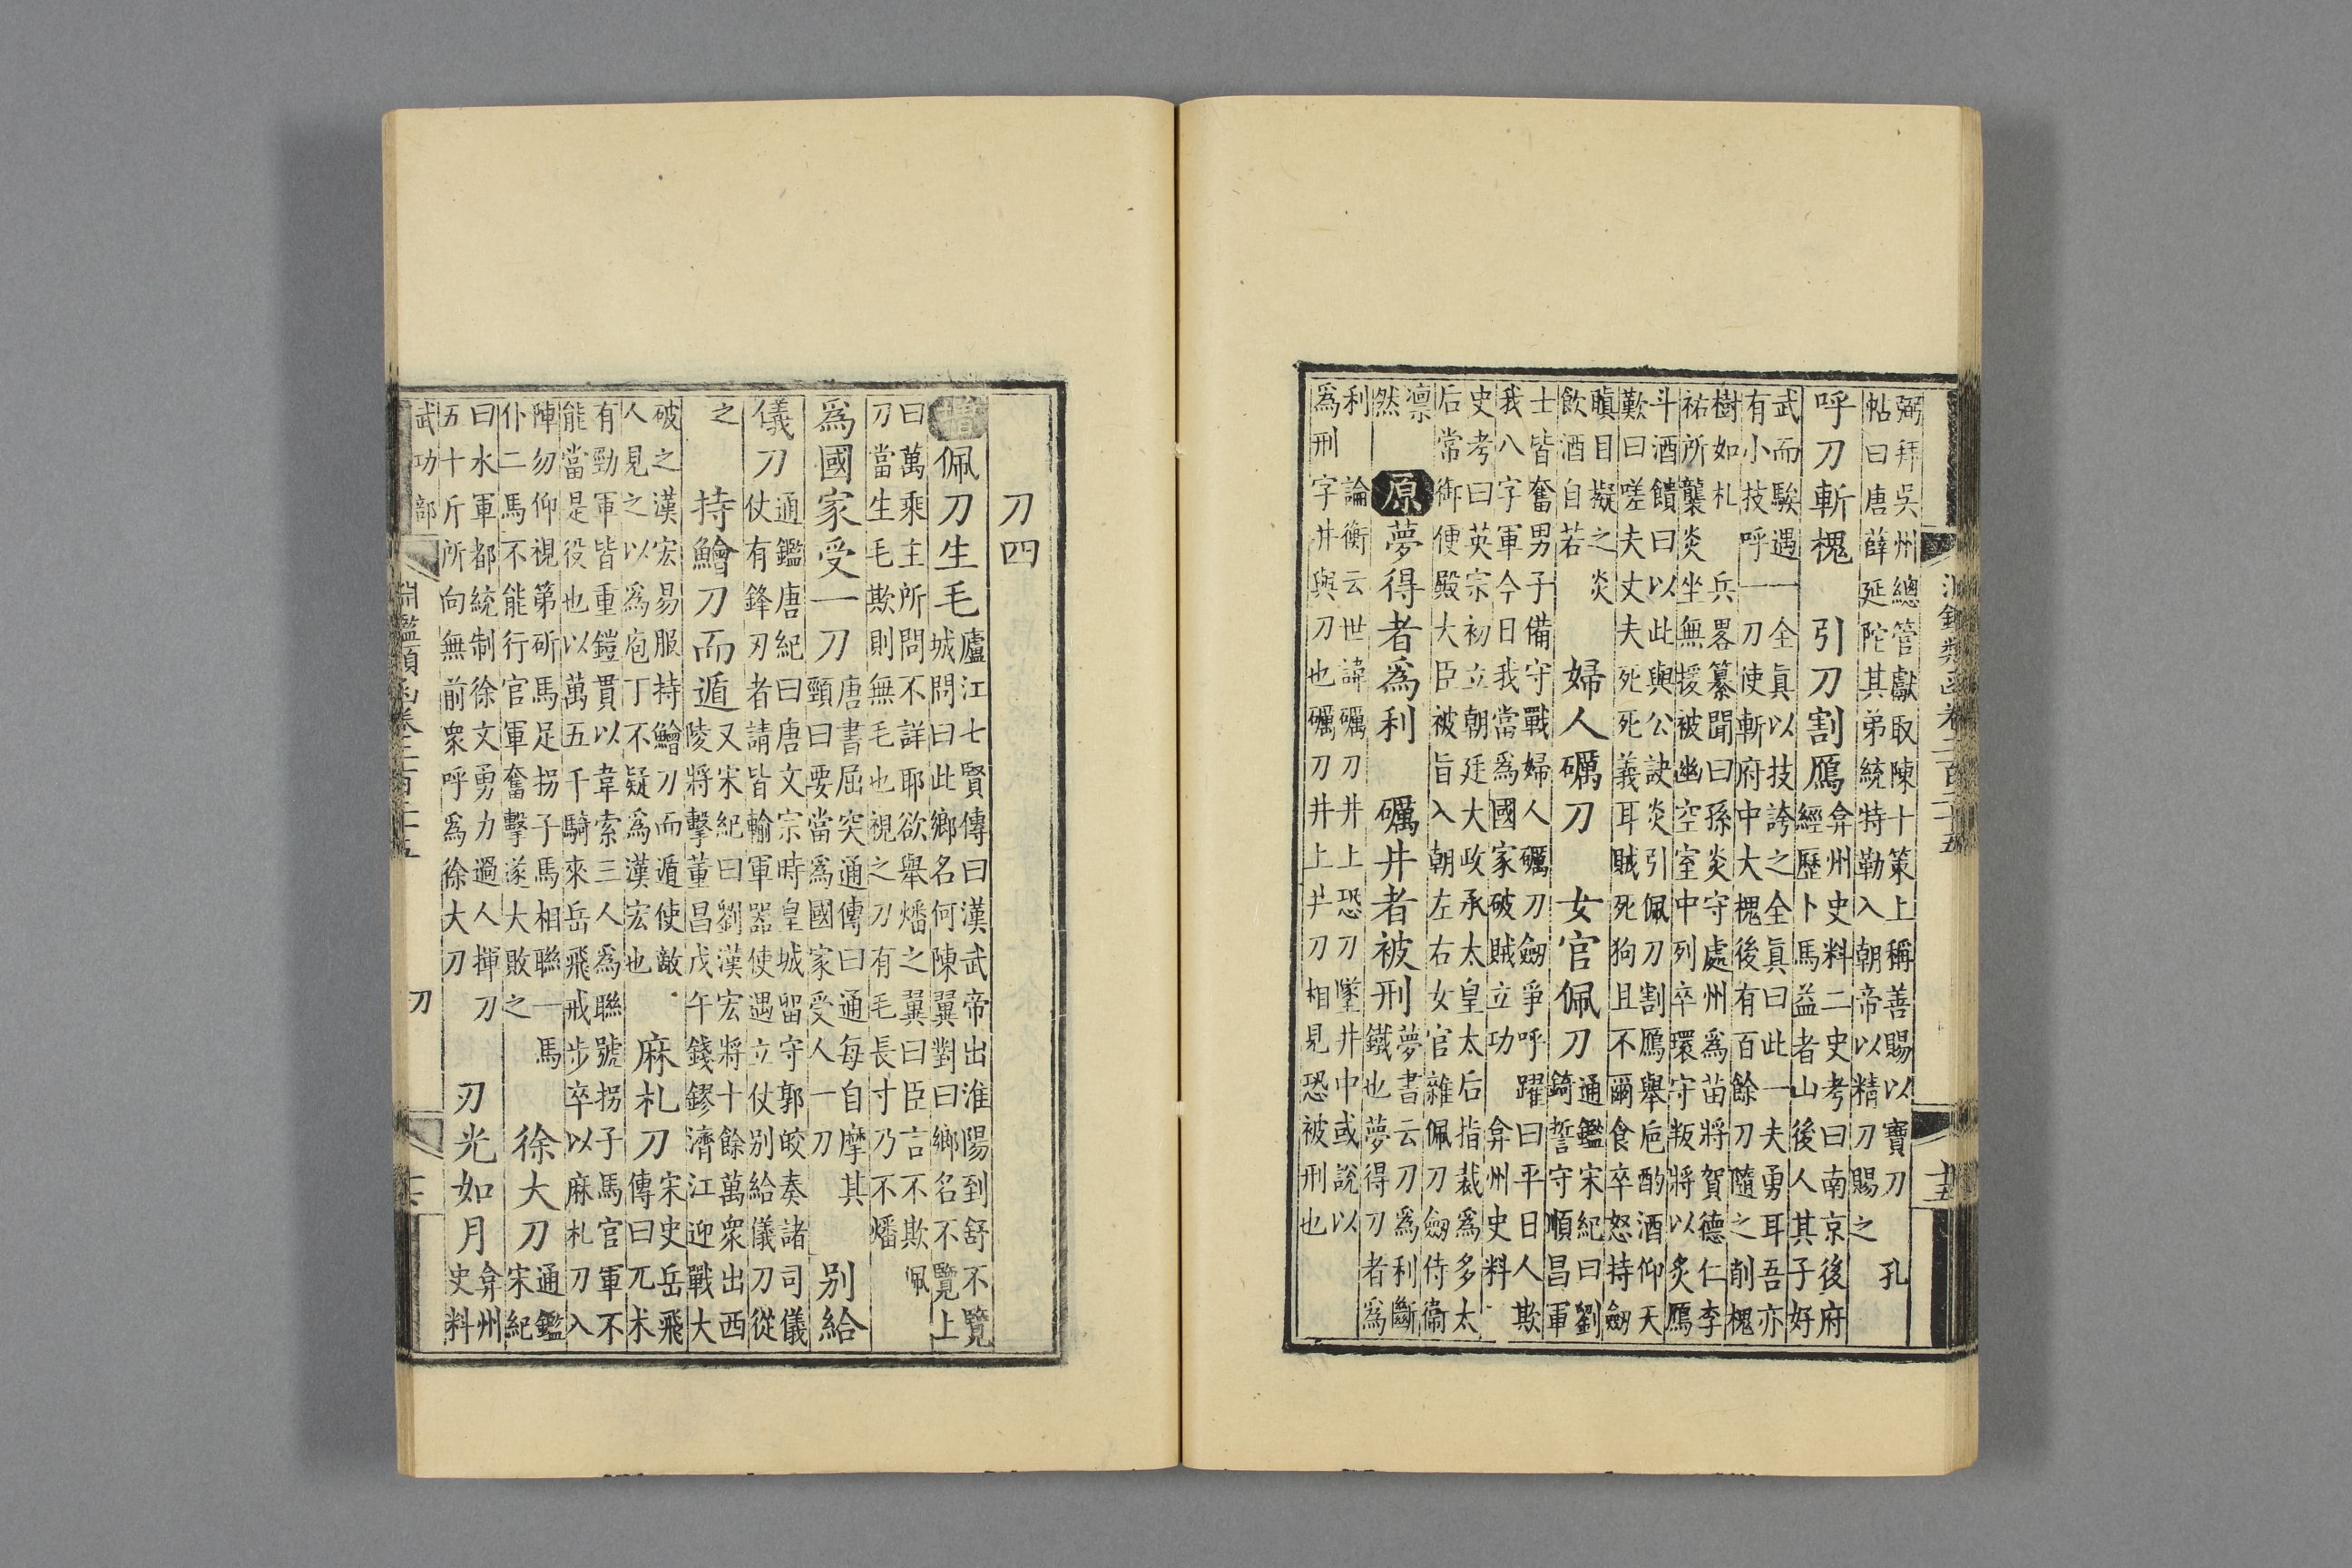 淵鑑類函卷二百二十五
十五
弼拜吳州總管獻取陳十策上稱善賜以寶刀　孔
帖曰唐薛延陀其弟統特勒入朝帝以精刀賜之
呼刀斬槐　引刀割鴈
弇州史料二史考曰南京後府
經歷卜馬益者山後人其子好
武而騃遇一全眞以技誇之全眞曰此一夫勇耳吾亦
有小技呼一刀使斬府中大槐後有百餘刀隨之削槐
樹如札　兵畧纂聞曰孫炎守處州爲苗將賀德仁李
祐所襲炎坐無援被幽空室中列卒環守叛將以炙鴈
斗酒饋曰以此與公訣炎引佩刀割鴈舉卮酌酒仰天
歎曰嗟夫丈夫死死義耳賊死狗且不爾食卒怒持劒
瞋目擬之炎
飲酒自若
婦人礪刀　女官佩刀
通鑑宋紀曰劉
錡誓守順昌軍
士皆奮男子備守戰婦人礪刀劒爭呼躍曰平日人欺
我八字軍今日我當爲國家破賊立功　弇州史料
史考曰英宗初立朝廷大政承太皇太后指裁爲多太
后常御便殿大臣被旨入朝左右女官雜佩刀劒侍衞
凛
然
原夢得者爲利　礪井者被刑
夢書云刀爲利斷
鐵也夢得刀者爲
利　論衡云世諱礪刀井上恐刀墜井中或說以
爲刑字井與刀也礪刀井上井刀相見恐被刑也
刀四
增佩刀生毛
廬江七賢傳曰漢武帝出淮陽到舒不覽
城問曰此鄉名何陳翼對曰鄉名不覽上
曰萬乘主所問不詳耶欲舉燔之翼曰臣言不欺佩
刀當生毛欺則無毛也視之刀有毛長寸乃不燔
爲國家受一刀
唐書屈突通傳曰通每自摩其
頸曰要當爲國家受人一刀
別給
儀刀
通鑑唐紀曰唐文宗時皇城留守郭皎奏諸司儀
仗有鋒刃者請皆輸軍器使遇立仗別給儀刀從
之
持鱠刀而遁
又宋紀曰劉漢宏將十餘萬衆出西
陵將擊董昌戊午錢鏐濟江迎戰大
破之漢宏易服持鱠刀而遁使敵
人見之以爲庖丁不疑爲漢宏也
麻札刀
宋史岳飛
傳曰兀朮
有勁軍皆重鎧貫以韋索三人爲聯號拐子馬官軍不
能當是役也以萬五千騎來岳飛戒步卒以麻札刀入
陣勿仰視第斫馬足拐子馬相聯一馬
仆二馬不能行官軍奮擊遂大敗之
徐大刀
通鑑
宋紀
曰水軍都統制徐文勇力過人揮刀
五十斤所向無前衆呼爲徐大刀
刃光如月
弇州
史料
武功部
淵鑑類函卷二百二十五
刀